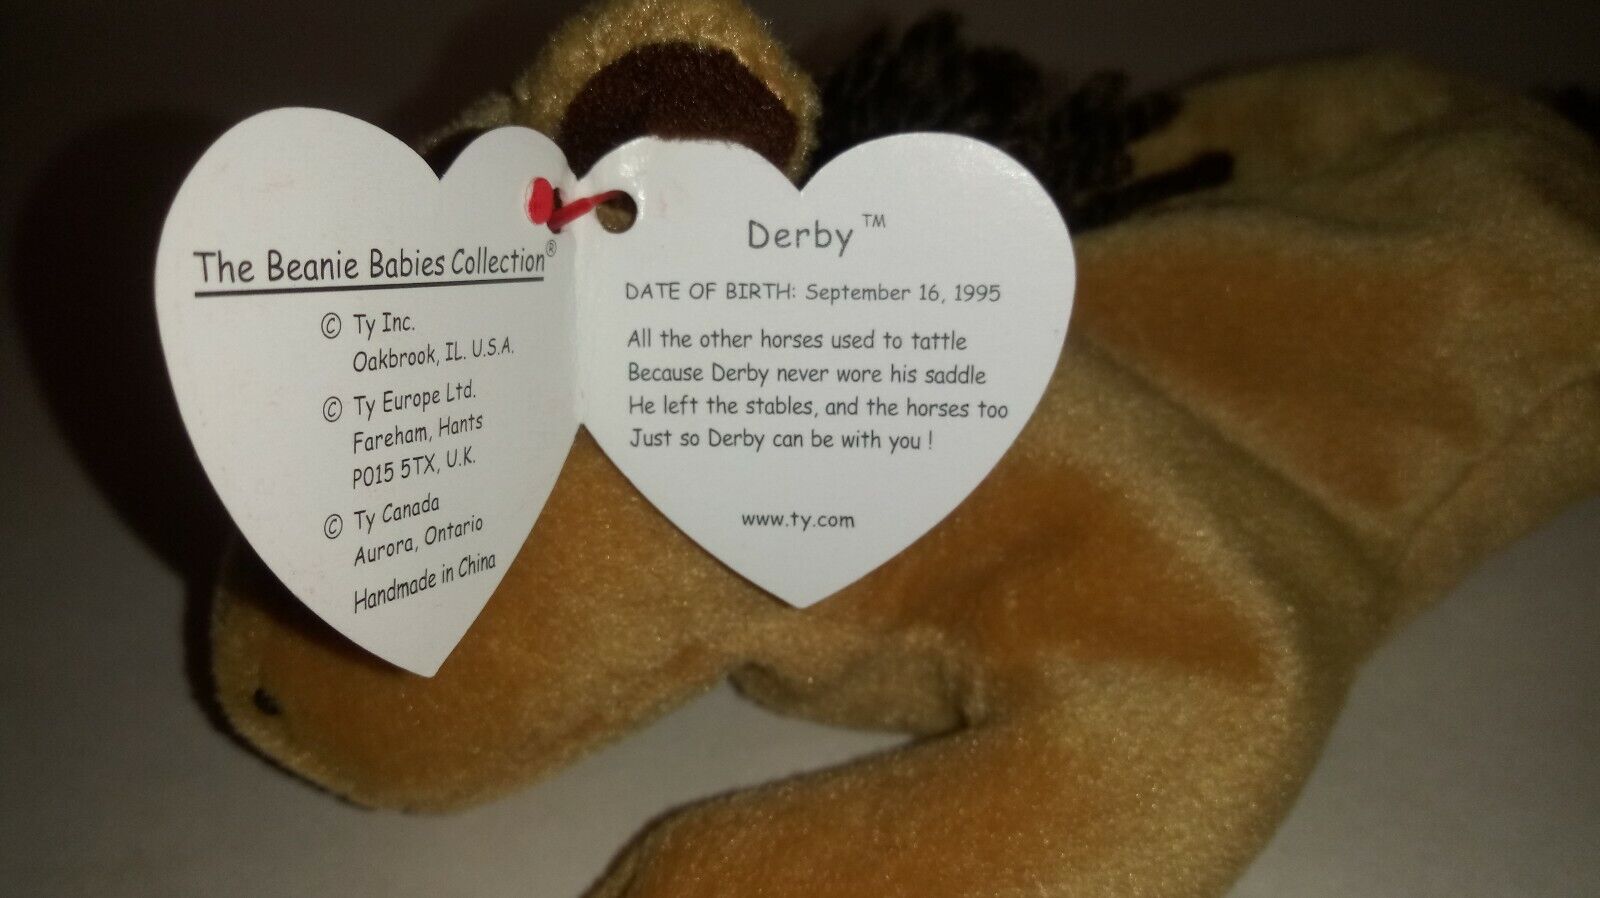 The Beanie Babies Collection®
© Ty Inc.
Oakbrook, IL. U.S.A.
© Ty Europe Ltd.
Fareham, Hants
PO15 5TX, U.K.
© Ty Canada
Aurora, Ontario
Handmade in China
Derby™
DATE OF BIRTH: September 16, 1995
All the other horses used to tattle
Because Derby never wore his saddle
He left the stables, and the horses too
Just so Derby can be with you !
www.ty.com